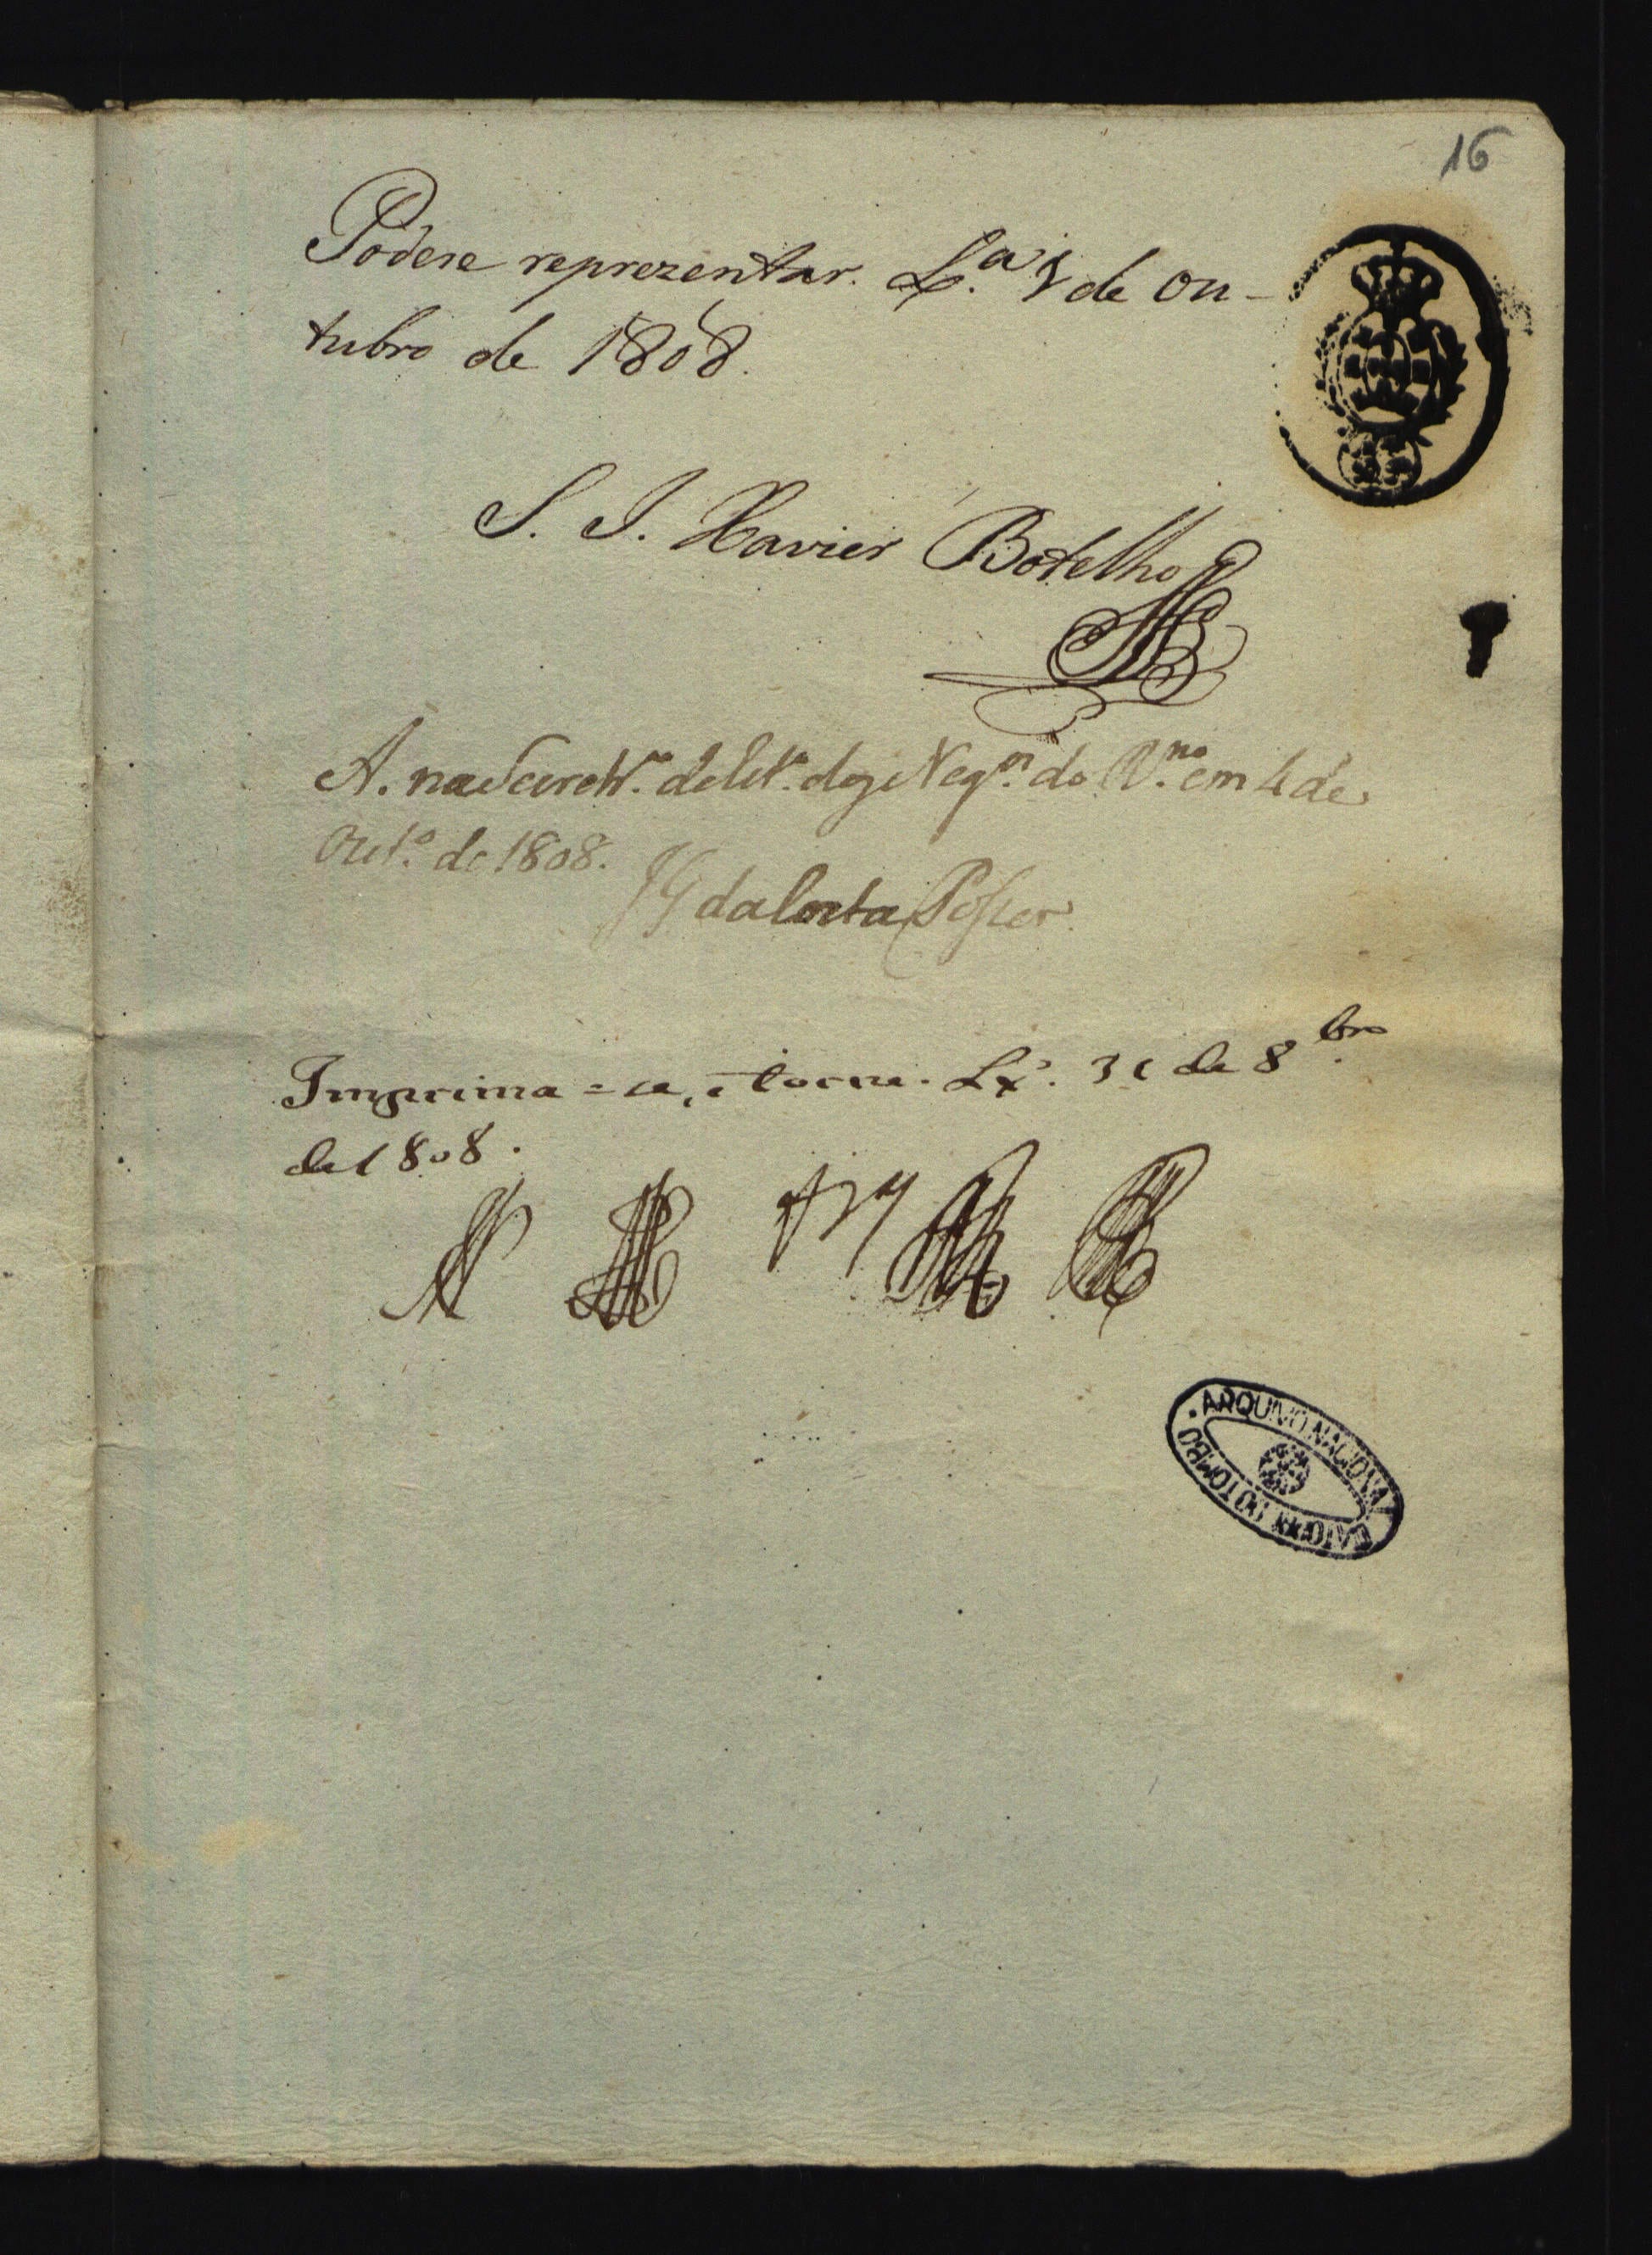 16
Podese reprezentar. Lx.ª 1 de Ou-
tubro de 1808.
S. J. Xavier Botelho
A. na Secretr.ª de Est.º dos Neg.os do R.no em 4 de
Out.º de 1808.
JG da Costa Posser
Imprima-se, e torne. Lx.ª 31 de 8bro
de 1808.
ARQUIVO NACIONAL
DA TORRE DO TOMBO